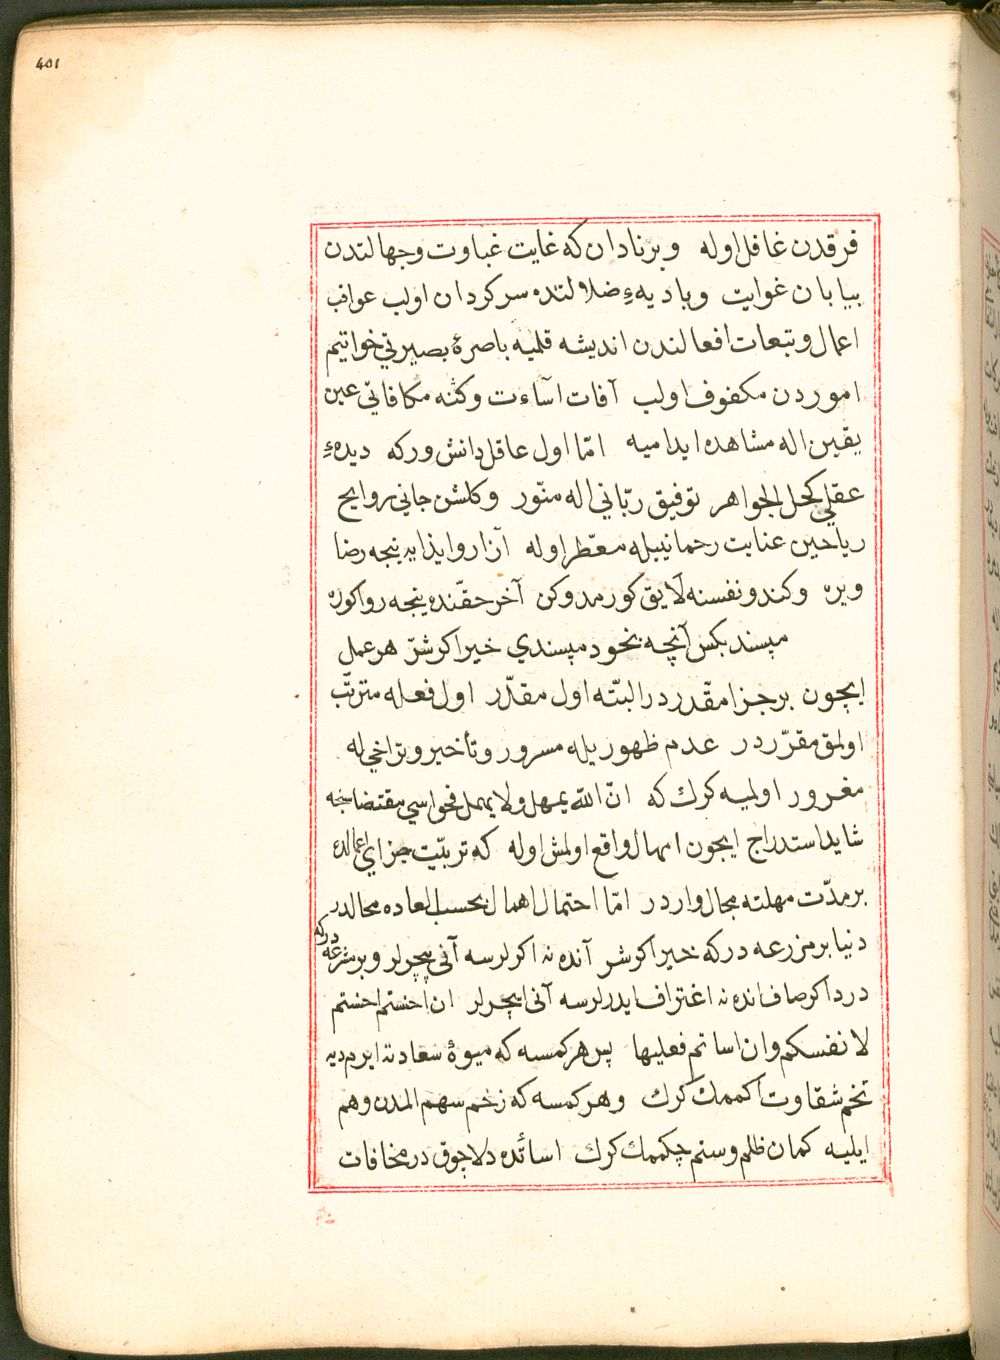 401
فرقدن غافل اوله وبر نادان كه غايت غباوت وجهالتدن
بيابان غوايت وباديهء ضلالتده سركردان اولب عواقب
اعمال وتبعات افعالندن انديشه قلميه باصرهٔ بصيرتي خواتيم
اموردن مكفوف اولب آفات اسآءت وكتنه مكافاتي عين
يقين اله مشاهده ايدا ميه امّا اول عاقل دانش وركه ديدهء
عقلي كحل الجواهر توفيق ربّاني اله منوّر وكلشن جاني روايح
رياحين عنايت رحمانييله معطّر اوله آزار وايذايه نيجه رضا
ويره وكندو نفسنه لايق كورمدوكن آخر حقّنده نيجه رواكوره
مپسند بكس آنچه بخود مپسندي خير اكر شرّ هر عمل
ايچون بر جزا مقدردر البتّه اول مقدّر اول فعله مترتّب
اولمق مقرّردر عدم ظهوريله مسرور وتأخير وتراخي له
مغرور اولميه كرك كه انّ اللّه يمهل ولا يهمل فحواسي مقتضاسنجه
شايد استدراج ايچون امهال واقع اولمش اوله كه تربيّت جزاي اعمالده
بر مدّت مهلته مجال واردر امّا احتمال اهمال بحسب العاده محالدر
دنيا بر مزرعه دركه خير اكر شر آنده نه اكرلرسه آني بيچرلر وبر مشرعه دركه
درد اكر صاف انده نه اغتراف ايدرلرسه آني ايچرلر ان احسنتم احسنتم
لانفسكم وان اساتم فعليها پس هر كمسه كه ميوهٔ سعادته ايرم ديه
تخم شقاوت اكممك كرك وهر كمسه كه زخم سهم المدن وهم
ايليه كمان ظلم وستم چكممك كرك اسأتده دلا چوق در مخافات